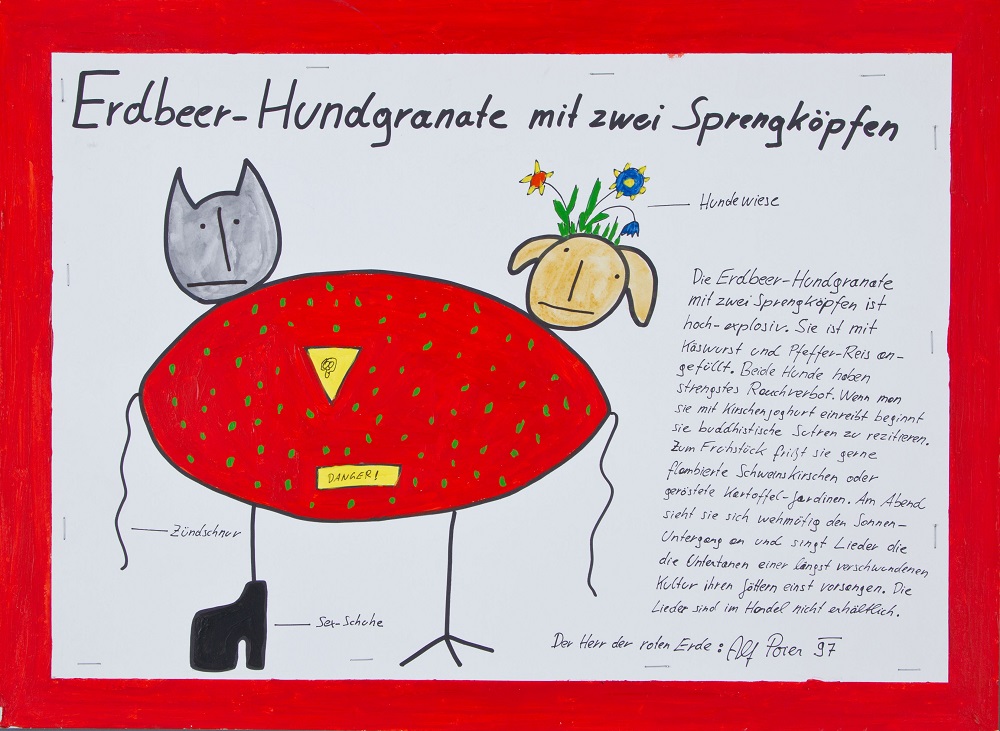 Erdbeer-Hundgranate mit zwei Sprengköpfen
Hundewiese
DANGER!
Zündschnur
Sex-Schuhe
Die Erdbeer-Hundgranate
mit zwei Sprengköpfen ist
hoch-explosiv. Sie ist mit
Käswurst und Pfeffer-Reis an-
gefüllt. Beide Hunde haben
strengstes Rauchverbot. Wenn man
sie mit Kirschenjoghurt einreibt beginnt
sie buddhistische Sutren zu rezitieren.
Zum Frühstück frißt sie gerne
flambierte Schweinskirschen oder
geröstete Kartoffel-Sardinen. Am Abend
sieht sie sich wehmütig den Sonnen-
Untergang an und singt Lieder die
die Untertanen einer längst verschwundenen
Kultur ihren Göttern einst vorsangen. Die
Lieder sind im Handel nicht erhältlich.
Der Herr der roten Erde: Alf Poier 97